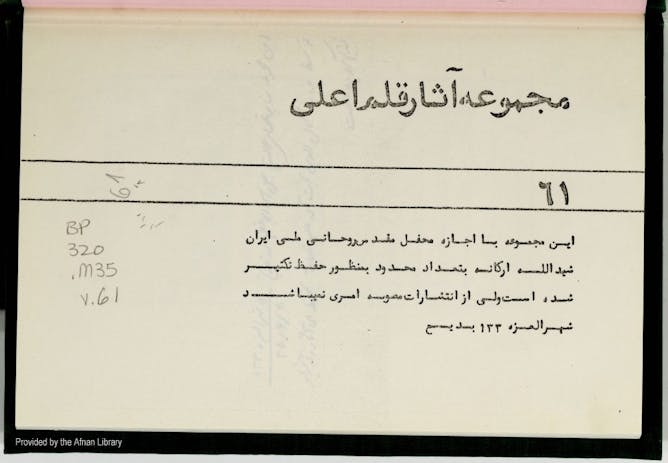 مجموعه آثار قلم اعلی
٦١
این مجموعه با اجازه محفل مقدس روحانی ملی ایران
شیدالله ارکانه بتعداد محدود بمنظور حفظ تکثیر
شده است ولی از انتشارات مصوبه امری نمیباشد
شهرالعزه ١٣٣ بدیع
61
BP
320
.M35
v.61
Provided by the Afnan Library